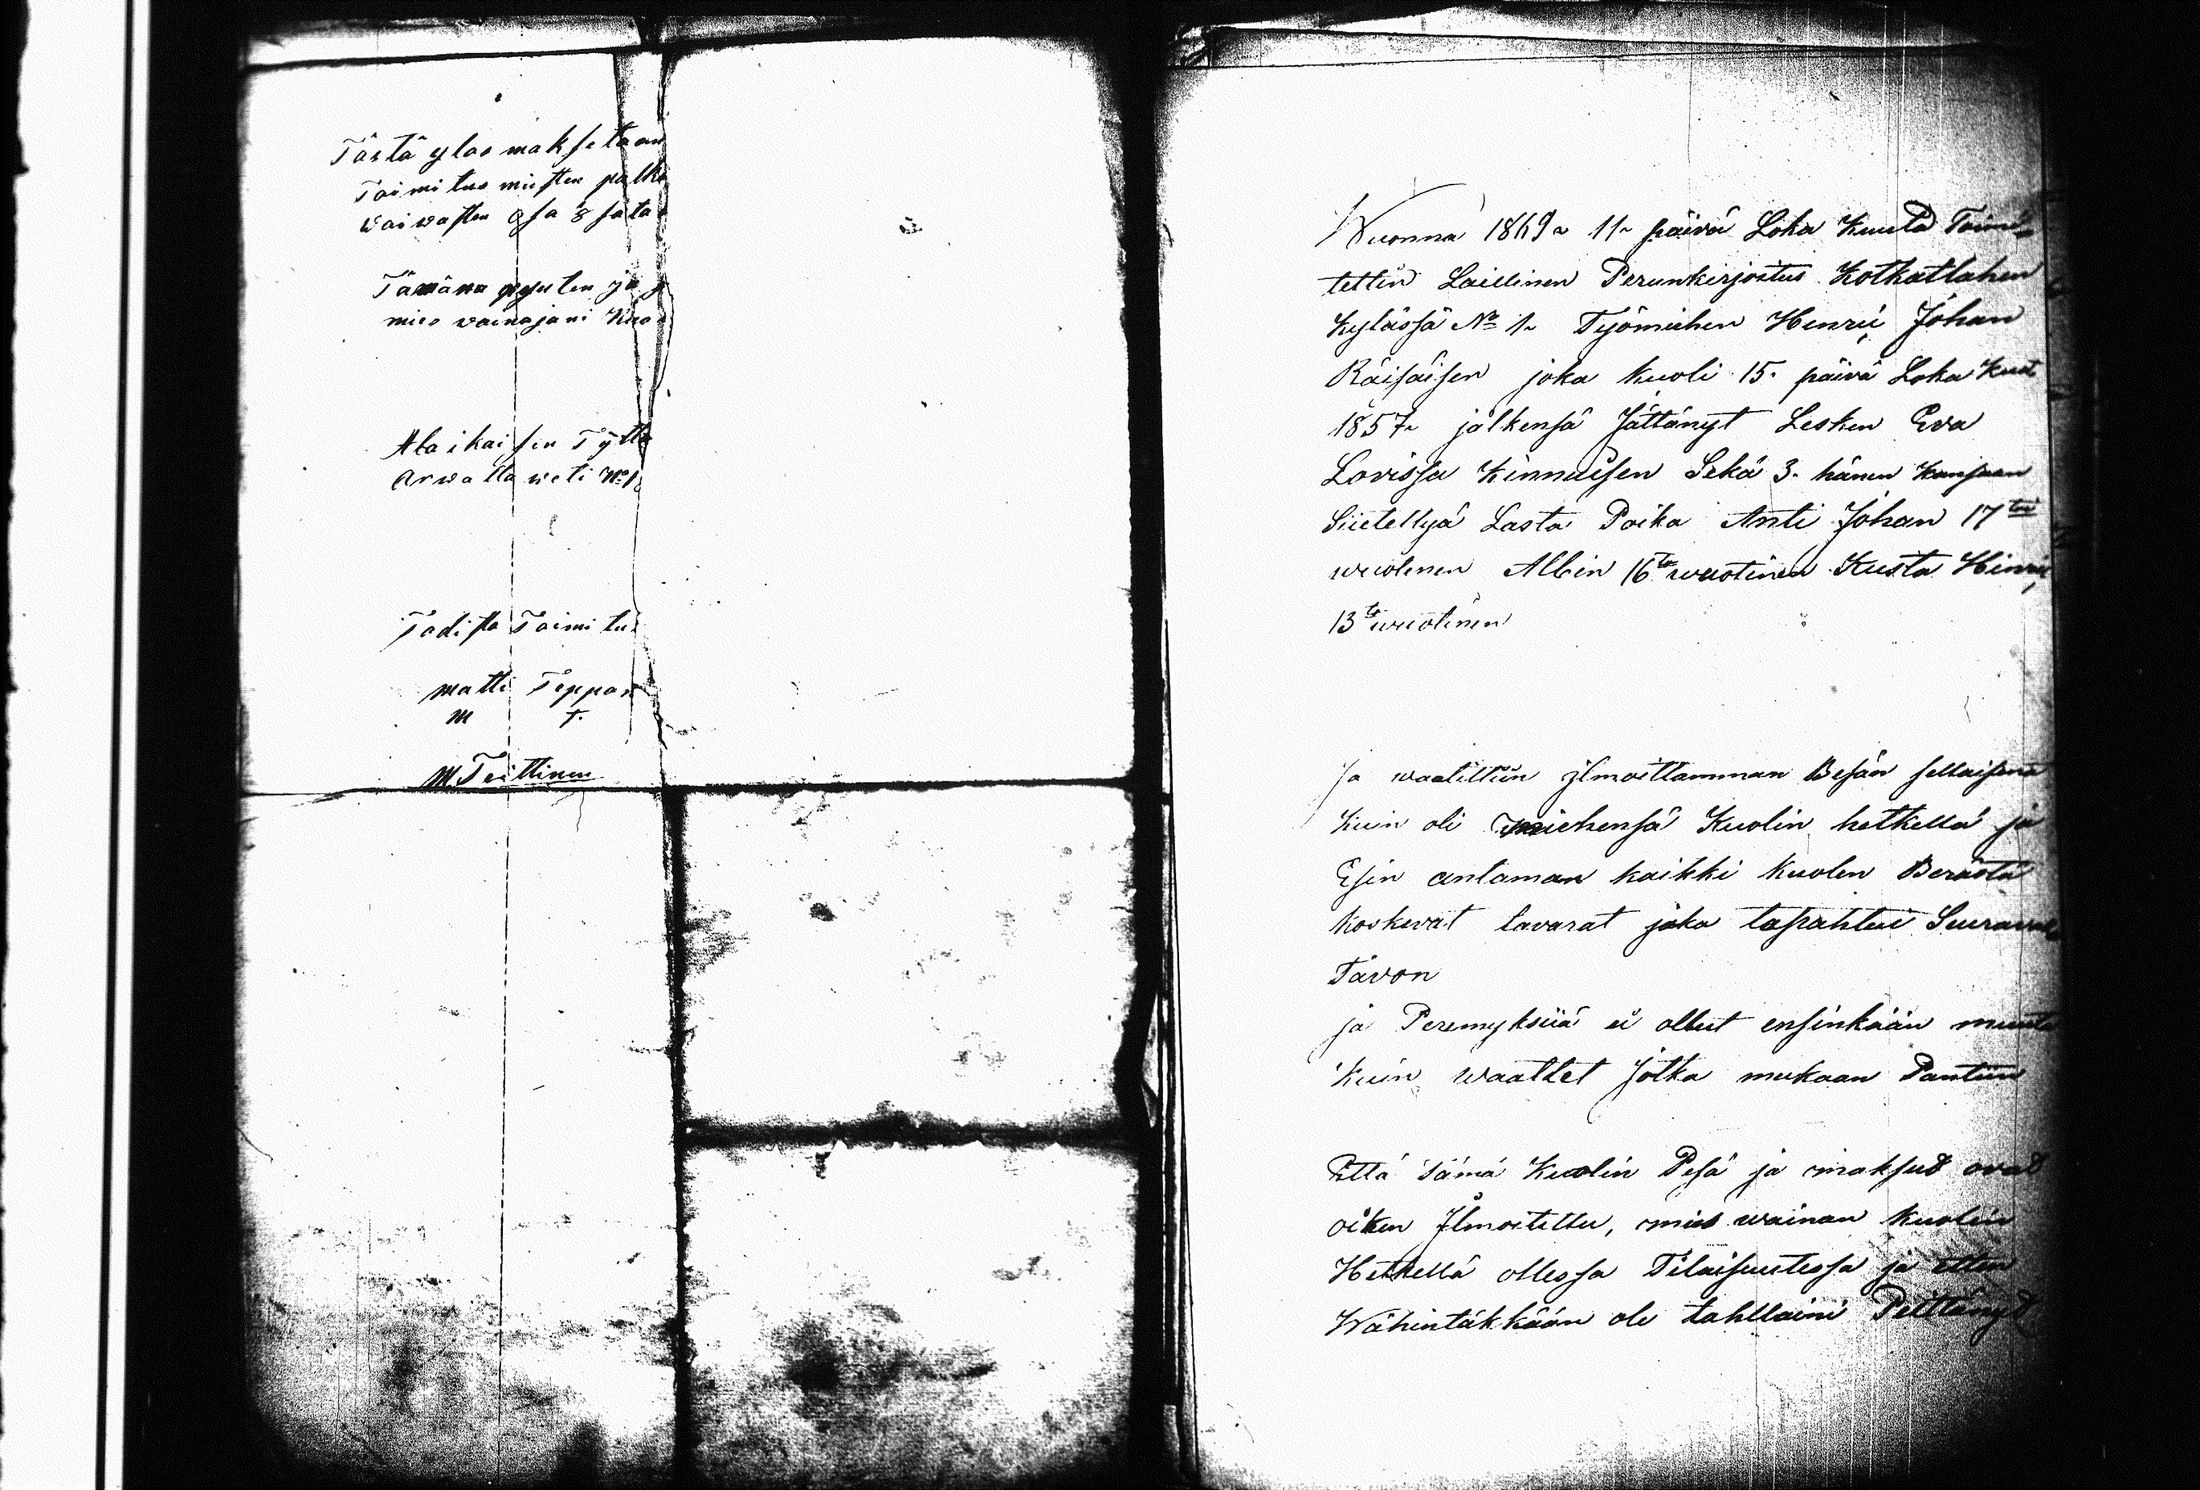 Tästä ylos maksetaan
Toimitus miesten palk
waiwasten osa 8 sata
Tämäna
mies vainajani Kuo
Ala ikaisen Tytt
arwatta weti No 1
Todista Toimitus
matti Teppo
M T.
M Teittinen
Wuonna 1869 11 päivä Loka Kuuta Toimi-
tettin Laillinen Perunkirjoitus Kotkatlahen
Kylässä No 1 Työmiehen Henrik Johan
Räisäisen joka kuoli 15. päivä Loka Kuut
1857 jälkensä Jättänyt Lesken Eva
Lovissa Kinnuisen Sekä 3. hänen Kansaan
Siitettyä Lasta Poika Anti Johan 17 toi
wuotinen Albin 16 to wuotinen Kusta Hinrik
13 to wuotinen
Ja waatittiin ilmoittamman Besän sellaisena
Kuin oli miehensä Kuolin hetkellä ja
Esin antaman kaikki kuolen Berästä
koskevat tavarat joka tapahtui Seuraava
Tavon
ja Peremyksiiä ei ollut ensinkään muuta
Kuin waattet Jotka mukaan Pantiin
Että Tämä Kuolin Pesä ja maksut ovat
oiken Ilmoitettu, mies wainan kuolin
Hetkellä ollessa Tilaisuutessa ja etten
Wähintäkkään ole tahtlaini Peittänyt